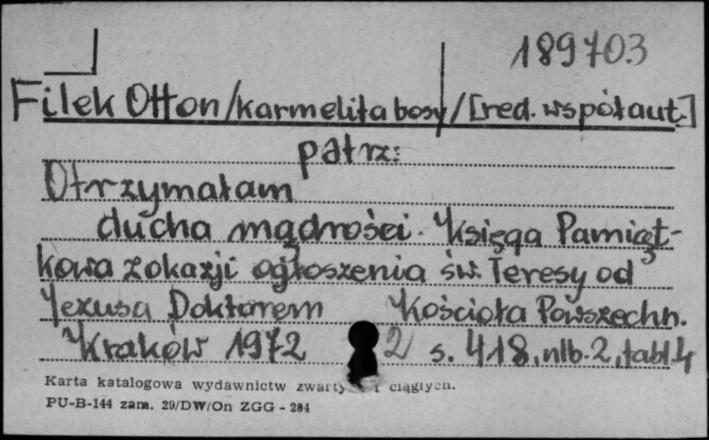 189703
Filek Otton/karmelita bosy/[red. współaut.]
patrz:
Otrzymałam
ducha mądrości. Księga Pamiąt-
kowa z okazji ogłoszenia św. Teresy od
Jezusa Doktorem Kościoła Powszechn.
Kraków 1972 2 s. 418, nlb. 2, tabl. 4
Karta katalogowa wydawnictw i ciągłych.
PU-B-144 zam. 29/DW/On ZGG - 284